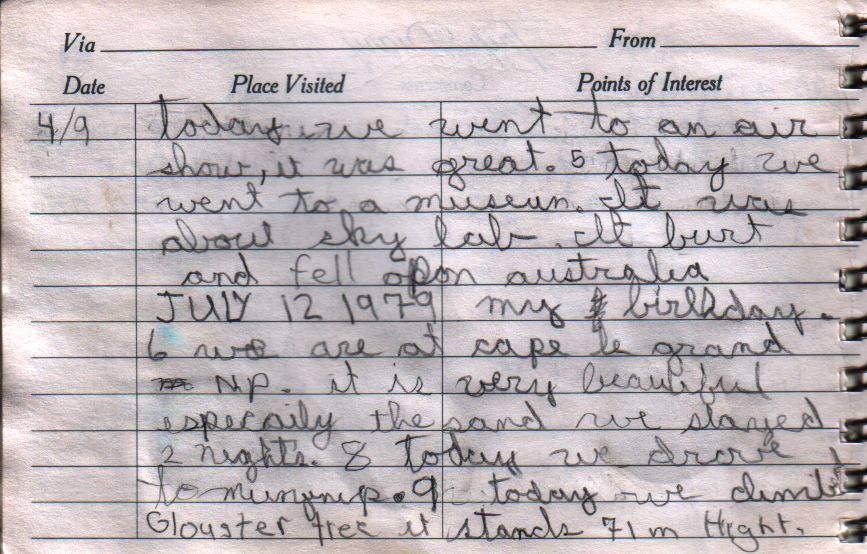 Via From
Date Place Visited Points of Interest
4/9 today we went to an air
show, it was great. 5 today we
went to a museun. It was
about sky lab. It burt
and fell opon australia
JULY 12 1979 my birthday.
6 we are at cape le grand
NP. it is very beautiful
especaily the sand we stayed
2 nights. 8 today we drove
to munjinup. 9 today we climbd
Glouster tree it stands 71m Hight.